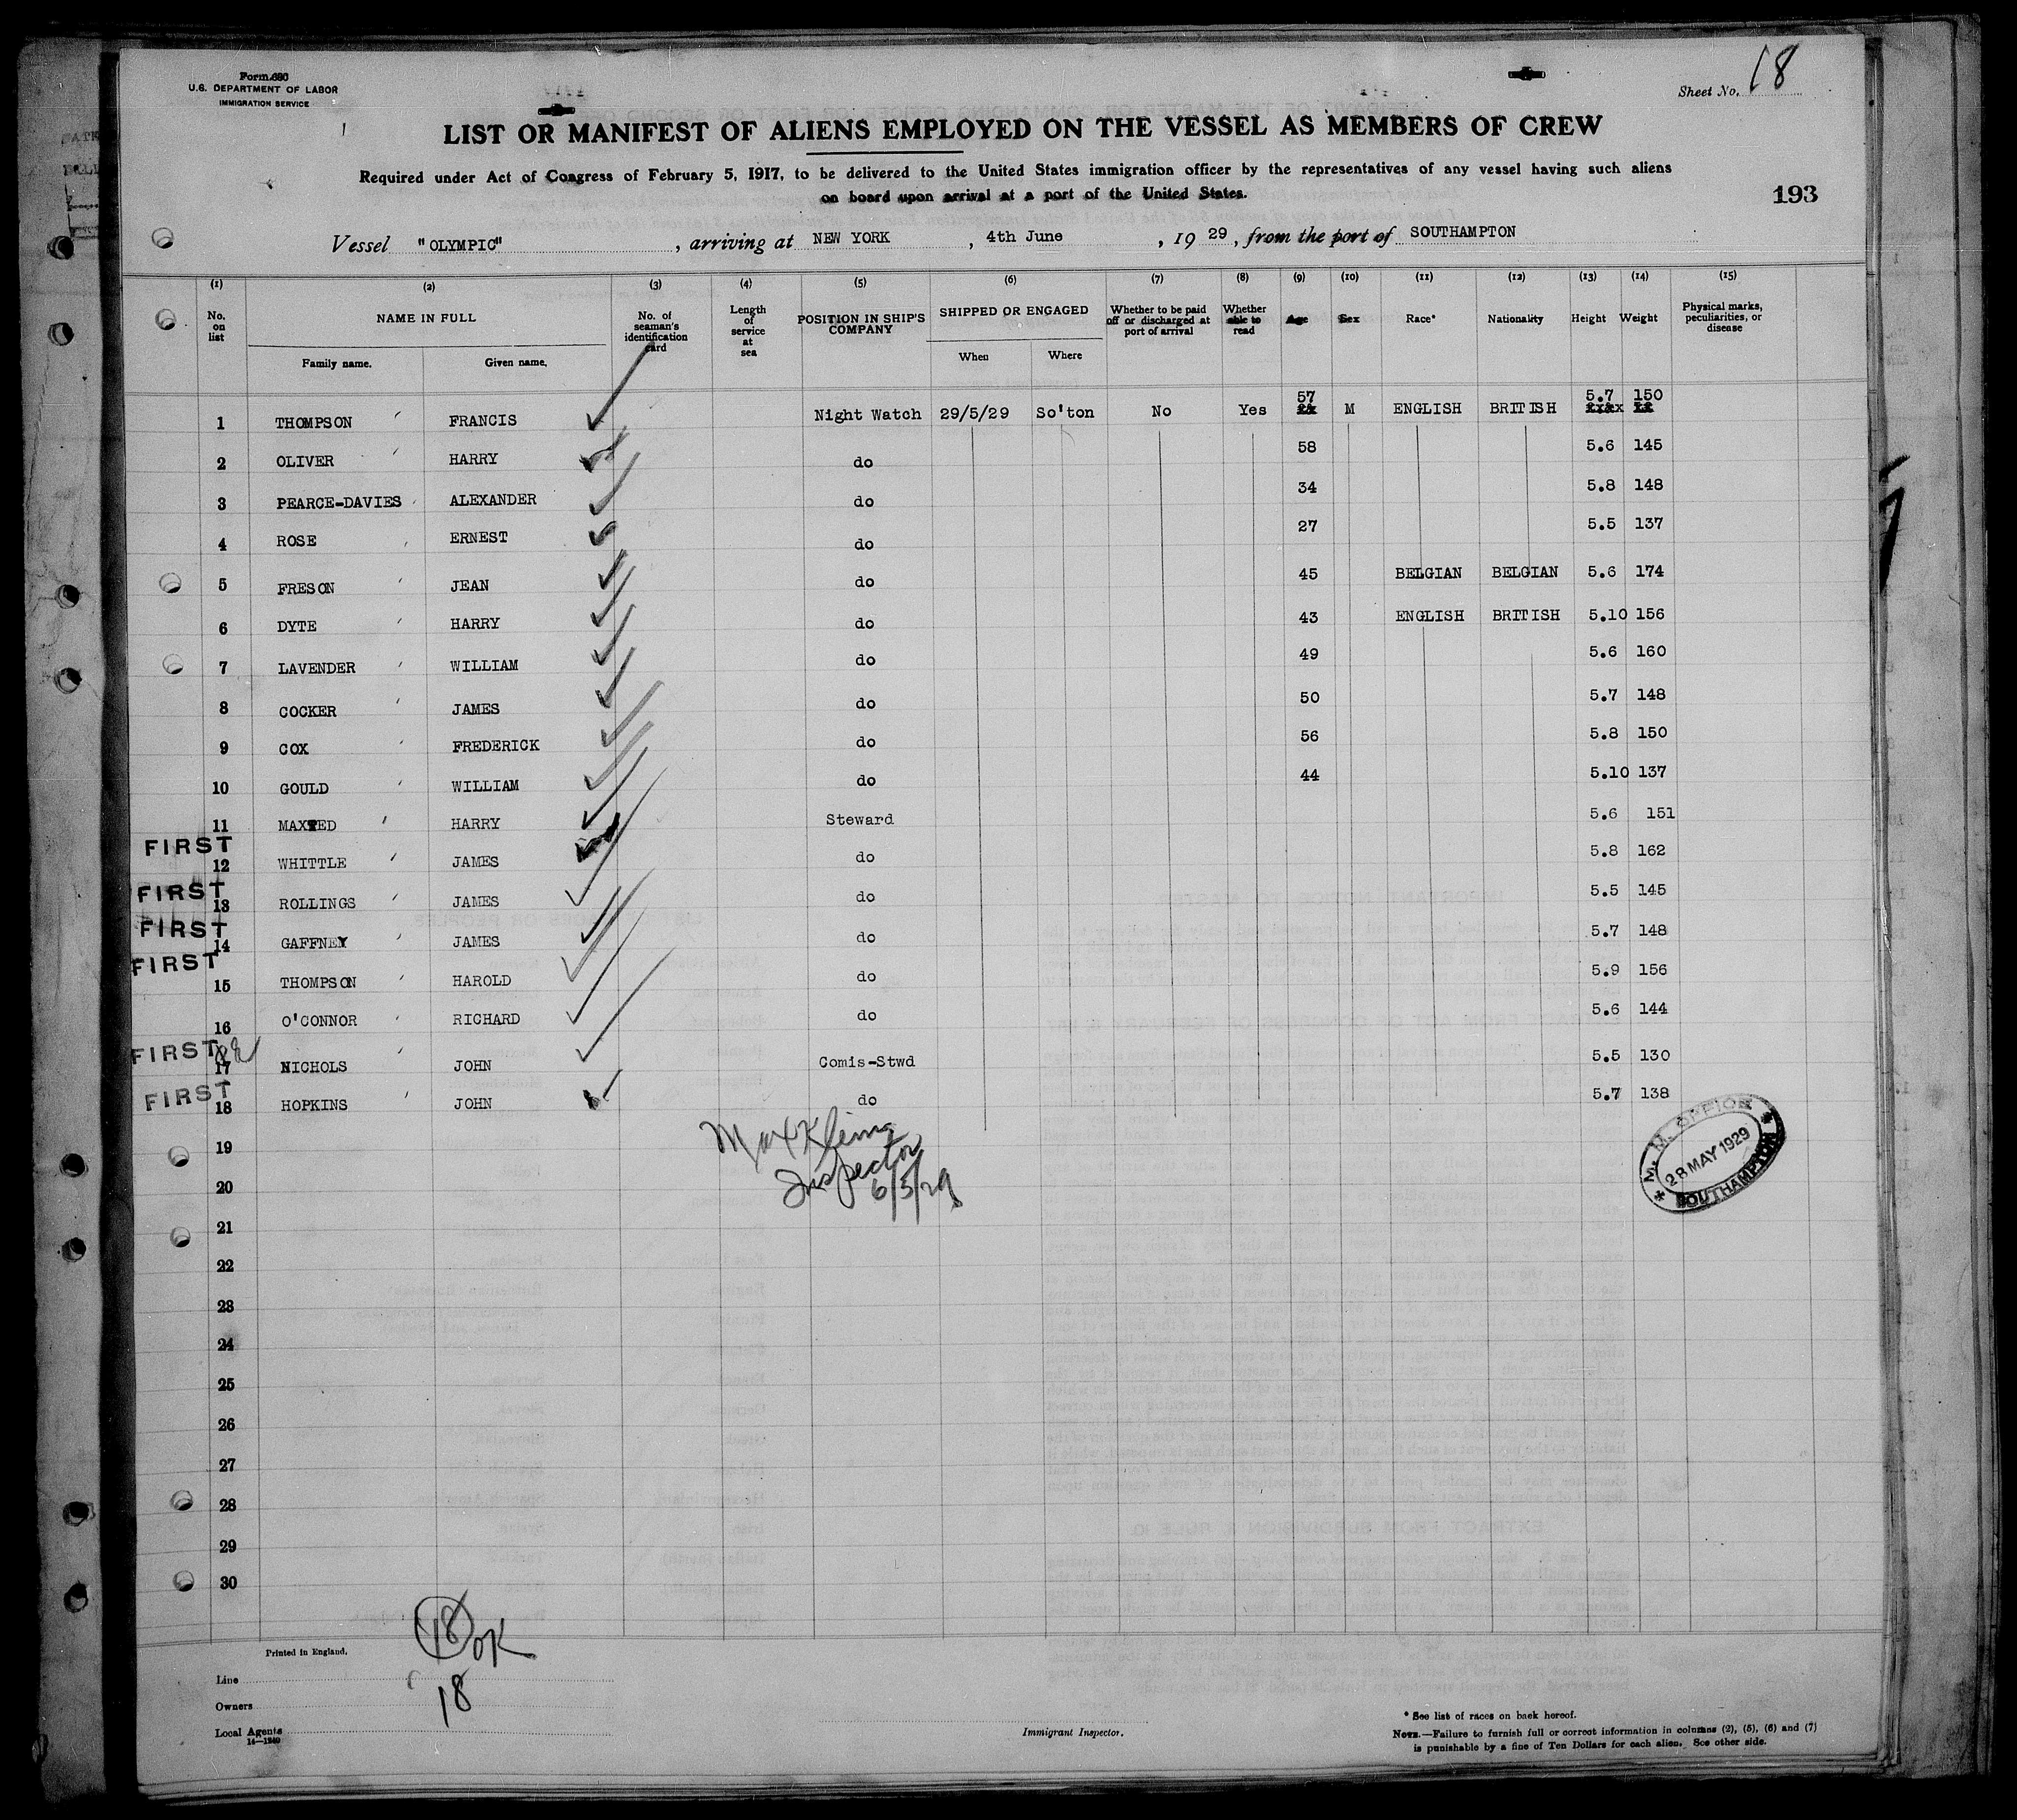 Form 680
U.S. DEPARTMENT OF LABOR
IMMIGRATION SERVICE
Sheet No. 18
LIST OR MANIFEST OF ALIENS EMPLOYED ON THE VESSEL AS MEMBERS OF CREW
Required under Act of Congress of February 5, 1917, to be delivered to the United States immigration officer by the representatives of any vessel having such aliens
on board upon arrival at a port of the United States.
193
Vessel "OLYMPIC", arriving at NEW YORK, 4th June, 1929, from the port of SOUTHAMPTON
(1) (2) (3) (4) (5) (6) (7) (8) (9) (10) (11) (12) (13) (14) (15)
No. on list NAME IN FULL No. of seaman's identification card Length of service at sea POSITION IN SHIP'S COMPANY SHIPPED OR ENGAGED Whether to be paid off or discharged at port of arrival Whether able to read Age Sex Race* Nationality Height Weight Physical marks, peculiarities, or disease
Family name. Given name. When Where
1 THOMPSON FRANCIS Night Watch 29/5/29 So'ton No Yes 57 M ENGLISH BRITISH 5.7 150
2 OLIVER HARRY do 58 5.6 145
3 PEARCE-DAVIES ALEXANDER do 34 5.8 148
4 ROSE ERNEST do 27 5.5 137
5 FRESON JEAN do 45 BELGIAN BELGIAN 5.6 174
6 DYTE HARRY do 43 ENGLISH BRITISH 5.10 156
7 LAVENDER WILLIAM do 49 5.6 160
8 COCKER JAMES do 50 5.7 148
9 COX FREDERICK do 56 5.8 150
10 GOULD WILLIAM do 44 5.10 137
11 MAXTED HARRY Steward 5.6 151
FIRST 12 WHITTLE JAMES do 5.8 162
FIRST 13 ROLLINGS JAMES do 5.5 145
FIRST 14 GAFFNEY JAMES do 5.7 148
FIRST 15 THOMPSON HAROLD do 5.9 156
16 O'CONNOR RICHARD do 5.6 144
FIRST 17 NICHOLS JOHN Comis-Stwd 5.5 130
FIRST 18 HOPKINS JOHN do 5.7 138
Max Kleing
Inspector
6/5/29
M. M. OFFICE
28 MAY 1929
SOUTHAMPTON
19
20
21
22
23
24
25
26
27
28
29
30
18 OK
18
Printed in England.
Line
Owners
Local Agents
14—1240
Immigrant Inspector.
* See list of races on back hereof.
NOTE.—Failure to furnish full or correct information in columns (2), (5), (6) and (7)
is punishable by a fine of Ten Dollars for each alien. See other side.